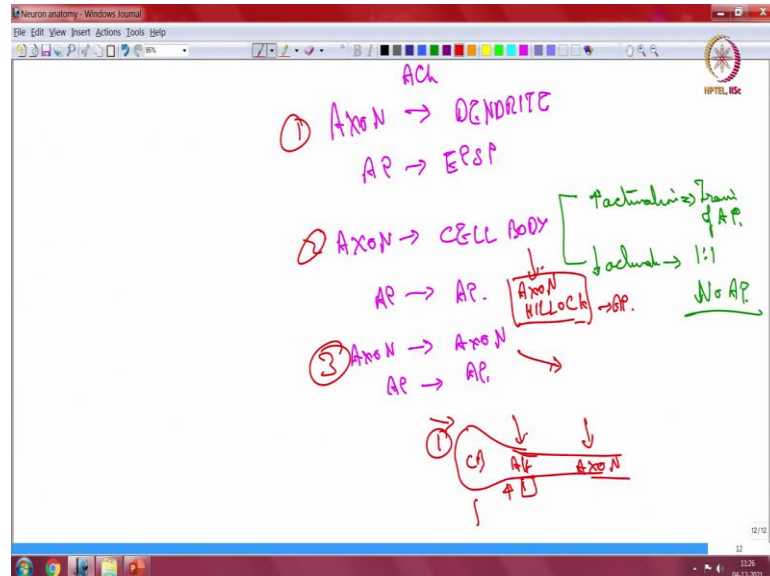 Neuron anatomy - Windows Journal
File Edit View Insert Actions Tools Help
95%
B I
NPTEL, IISc
ACh
① AXON → DENDRITE
AP → EPSP
② AXON → CELL BODY
AP → AP.
AXON HILLOCK → AP.
↑ → Train of AP.
↓ → 1:1
No AP.
③ AXON → AXON
AP → AP.
① CB AH AXON
12/12
12
11:26
04-12-2021